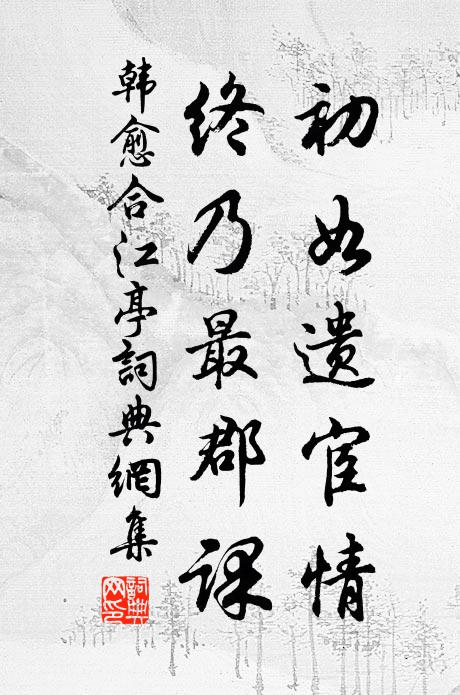 初如遗宦情
终乃最郡课
韩愈合江亭詞典網集
詞典网印